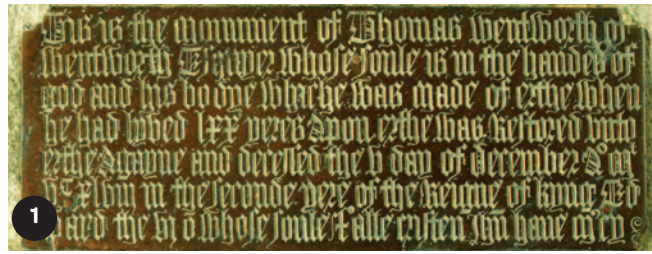 This is the monument of Thomas Wentworth of
Wentworth Esquier Whose soule is in the handes of
god and his bodye Whiche Was made of erthe When
he had lyved lxx yeres Apon erthe Was Restored vnto
erthe Agayne and decessed the v day of december Aº
xlviii in the seconde yere of the Reigne of kyng Ed
ward the vi ō whose soule & alle cristen Jhū have m'cy
1